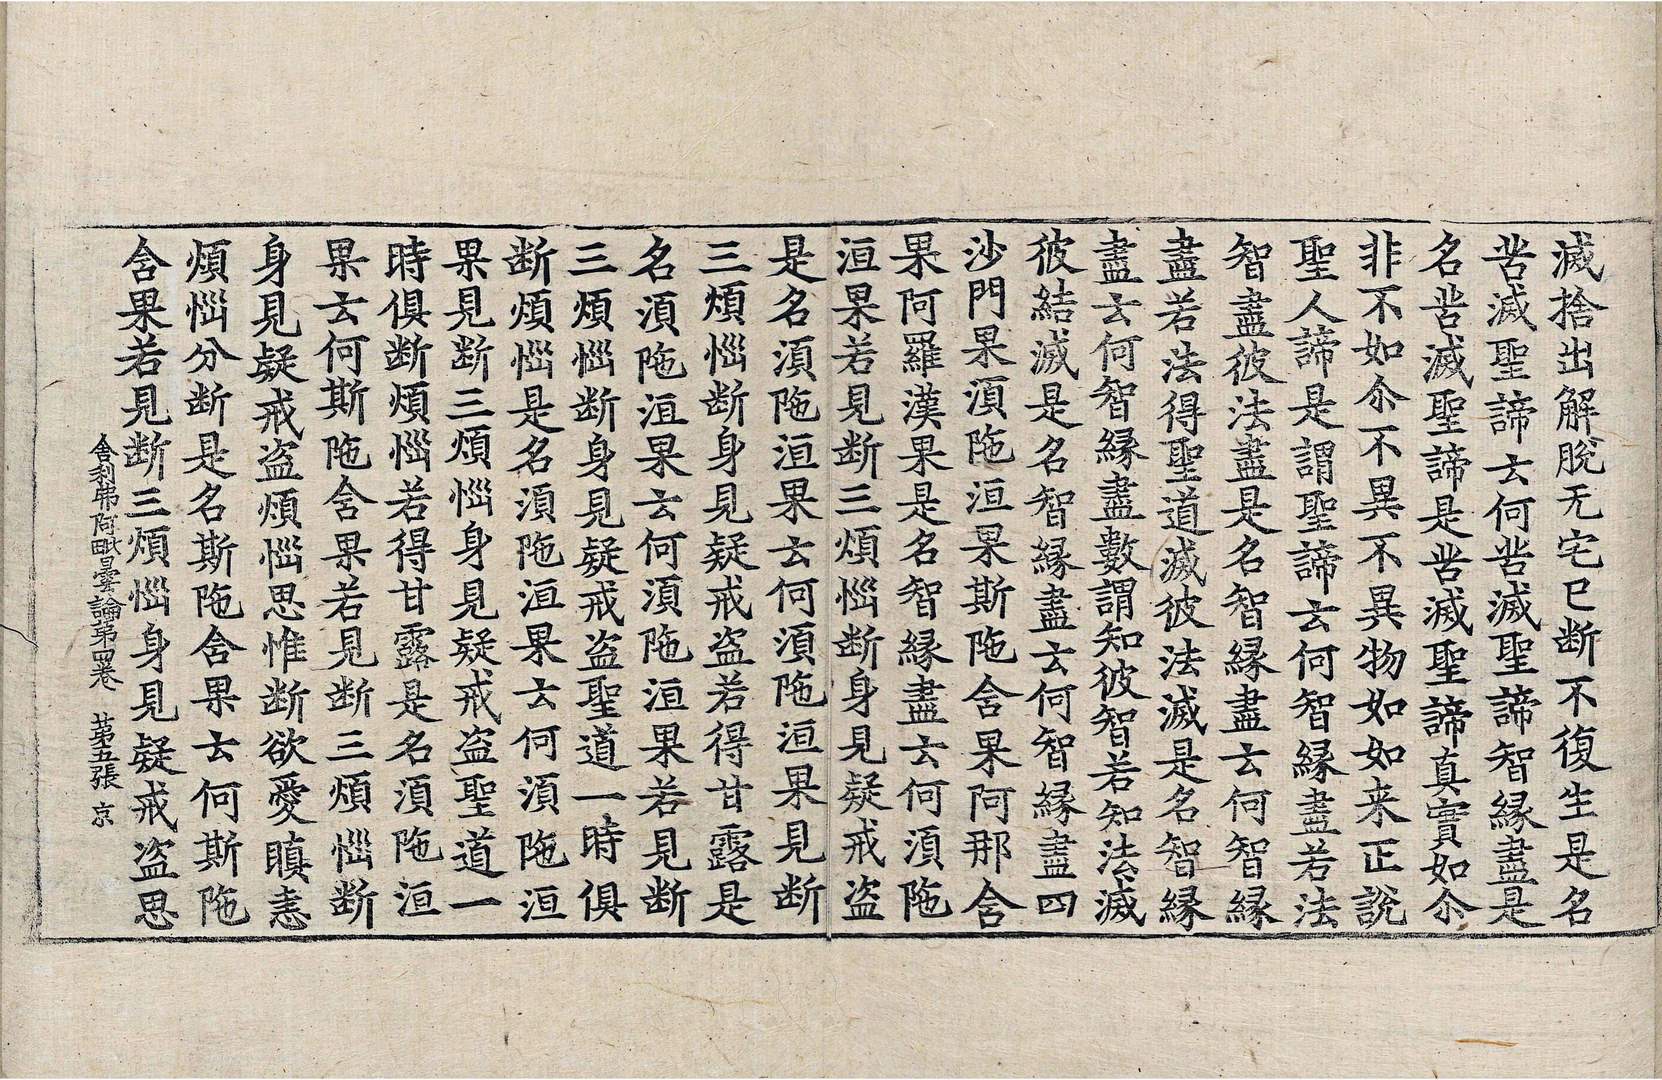 滅捨出解脫无宅已断不復生是名
苦滅聖諦云何苦滅聖諦智緣盡是
名苦滅聖諦是苦滅聖諦真實如尒
非不如尒不異不異物如如来正說
聖人諦是謂聖諦云何智緣盡若法
智盡彼法盡是名智緣盡云何智緣
盡若法得聖道滅彼法滅是名智緣
盡云何智緣盡數謂知彼智若知法滅
彼結滅是名智緣盡云何智緣盡四
沙門果湏陁洹果斯陁舍果阿那舍
果阿羅漢果是名智緣盡云何湏陁
洹果若見断三煩惱断身見疑戒盗
是名湏陁洹果云何湏陁洹果見断
三煩惱断身見疑戒盗若得甘露是
名湏陁洹果云何湏陁洹果若見断
三煩惱断身見疑戒盗聖道一時俱
断煩惱是名湏陁洹果云何湏陁洹
果見断三煩惱身見疑戒盗聖道一
時俱断煩惱若得甘露是名湏陁洹
果云何斯陁舍果若見断三煩惱断
身見疑戒盗煩惱思惟断欲愛瞋恚
煩惱分断是名斯陁舍果云何斯陁
舍果若見断三煩惱身見疑戒盗思
舍利弗阿毗曇論第四卷 第五張 京